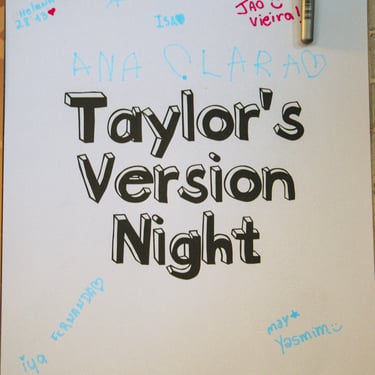 Helena
28.13 ♥
ISA ♥
JAO
Vieira!
ANA CLARA ♡
Taylor's
Version
Night
FERNANDA ♡
iya
may
Yasmim